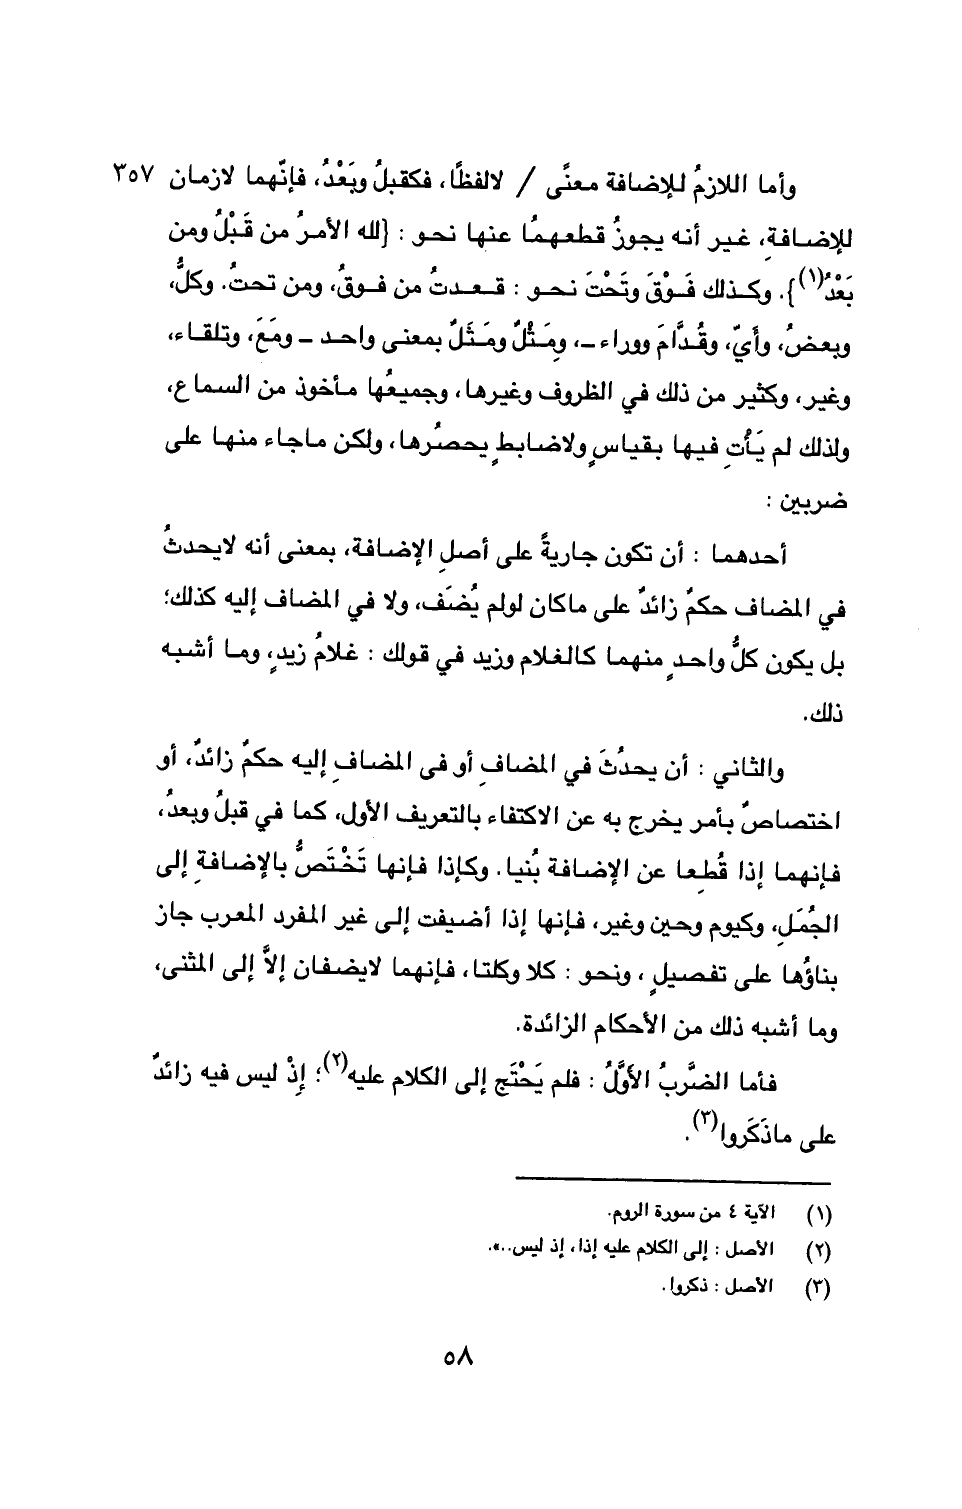 وأما اللازمُ للإضافة معنًى / لالفظًا، فكقبلُ وبَعْدُ، فإنّهما لازمان ٣٥٧
للإضافةِ، غير أنه يجوزُ قطعهمُا عنها نحو : {لله الأمرُ من قَبْلُ ومن
بَعْدُ(١)}. وكذلك فَوْقَ وتَحْتَ نحو : قعدتُ من فوقُ، ومن تحتُ. وكلُّ،
وبعضُ، وأَيّ، وقُدَّامَ ووراء –، ومِثْلٌ ومَثَلٌ بمعنى واحد – ومَعَ، وتلقاء،
وغير، وكثير من ذلك في الظروف وغيرها، وجميعُها مأخوذ من السماع،
ولذلك لم يَأْتِ فيها بقياسٍ ولاضابطٍ يحصُرها، ولكن ماجاء منها على
ضربين :
أحدهما : أن تكون جاريةً على أصلِ الإضافة، بمعنى أنه لايحدثُ
في المضاف حكمٌ زائدٌ على ماكان لولم يُضَف، ولا في المضاف إليه كذلك؛
بل يكون كلُّ واحدٍ منهما كالغلام وزيد في قولك : غلامُ زيدٍ، وما أشبه
ذلك.
والثاني : أن يحدُثَ في المضافِ أو فى المضافِ إليه حكمٌ زائدٌ، أو
اختصاصٌ بأمر يخرج به عن الاكتفاء بالتعريف الأول، كما في قبلُ وبعدُ،
فإنهما إذا قُطِعا عن الإضافة بُنيا. وكإذا فإنها تَخْتَصُّ بالإضافةِ إلى
الجُمَلِ، وكيوم وحين وغير، فإنها إذا أضيفت إلى غير المفرد المعرب جاز
بناؤُها على تفصيلٍ ، ونحو : كلا وكلتا، فإنهما لايضفان إلاَّ إلى المثنى،
وما أشبه ذلك من الأحكام الزائدة.
فأما الضَّربُ الأوَّلُ : فلم يَحْتَج إلى الكلام عليه(٢)؛ إِذْ ليس فيه زائدٌ
على ماذَكَروا(٣).
(١) الآية ٤ من سورة الروم.
(٢) الأصل : إلى الكلام عليه إذا، إذ ليس..».
(٣) الأصل : ذكروا.
٥٨